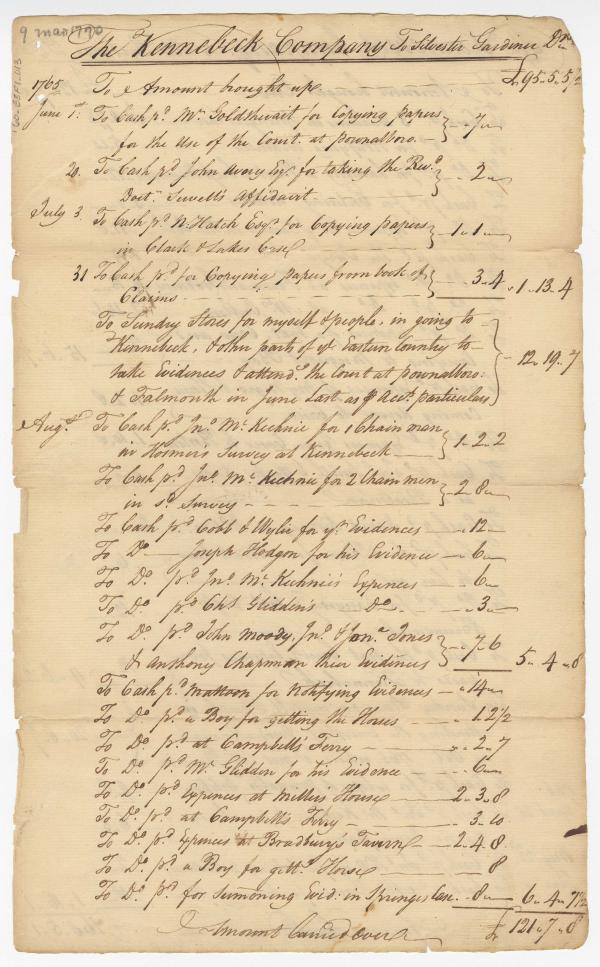 9 mar 1770
The Kennebeck Company To Silvester Gardiner Dr.
1765 To Amount brought up £95..5..5½
June 1st. To Cash pd. Mr. Goldthwait for Copying papers
for the Use of the Court at pownalboro. - - 7 -
20. To Cash pd. John Avery Esqr. for taking the Revd.
Doctr. Sewell's Affidavit - 3 -
July 3. To Cash pd. N. Hatch Esqr. for Copying papers
in Clark & Lakes Case 1 . 1 -
31 To Cash pd. for Copying papers from book of
Claims - - - - 3 . 4 1 . 13 . 4
To Sundry Stores for myself & people, in going to
Kennebeck, & other parts of ye Eastern Country to
take Evidences & attendg. the Court at pownalboro:
& Falmouth in June Last as pr Acct. particulars 12 . 19 . 7
Augst. To Cash pd. Jno. Mc. Kechnie for 1 Chain man
in Hosmer's Survey at Kennebeck 1 . 2 . 2
To Cash pd. Jno. Mc. Kechnie for 2 Chain men
in sd. Survey - - - 2 . 8 -
To Cash pd. Cobb & Wyler for yr. Evidences - 12 -
To Do. Joseph Hodgon for his Evidence - 6 -
To Do. pd. Jno. Mc. Kechnie's Expences - 6 -
To Do. pd. Chs Glidden's Do. - 3 -
To Do. pd. John Moody, Jno. & Jona. Jones
& Anthony Chapman their Evidences 7 . 6 5 . 4 . 8
To Cash pd. Mattoon for Notifying Evidences - 14 -
To Do. pd. a Boy for getting the Horses - 1. 2½
To Do. pd. at Campbell's Ferry - 2 . 7
To Do. pd. Mr. Glidden for his Evidence - 6 -
To Do. pd. Expences at Millers House 2 . 3 . 8
To Do. pd. at Campbells Ferry - 3. 10
To Do. pd. Expences at Bradbury's Tavern 2 . 4 . 8
To Do. pd. a Boy for gettg. Horse - 8
To Do. pd. for Summoning Evid: in Springes Case . 8 - 6 . 4 . 7½
Amount Carried over £ 121 . 7 . 8